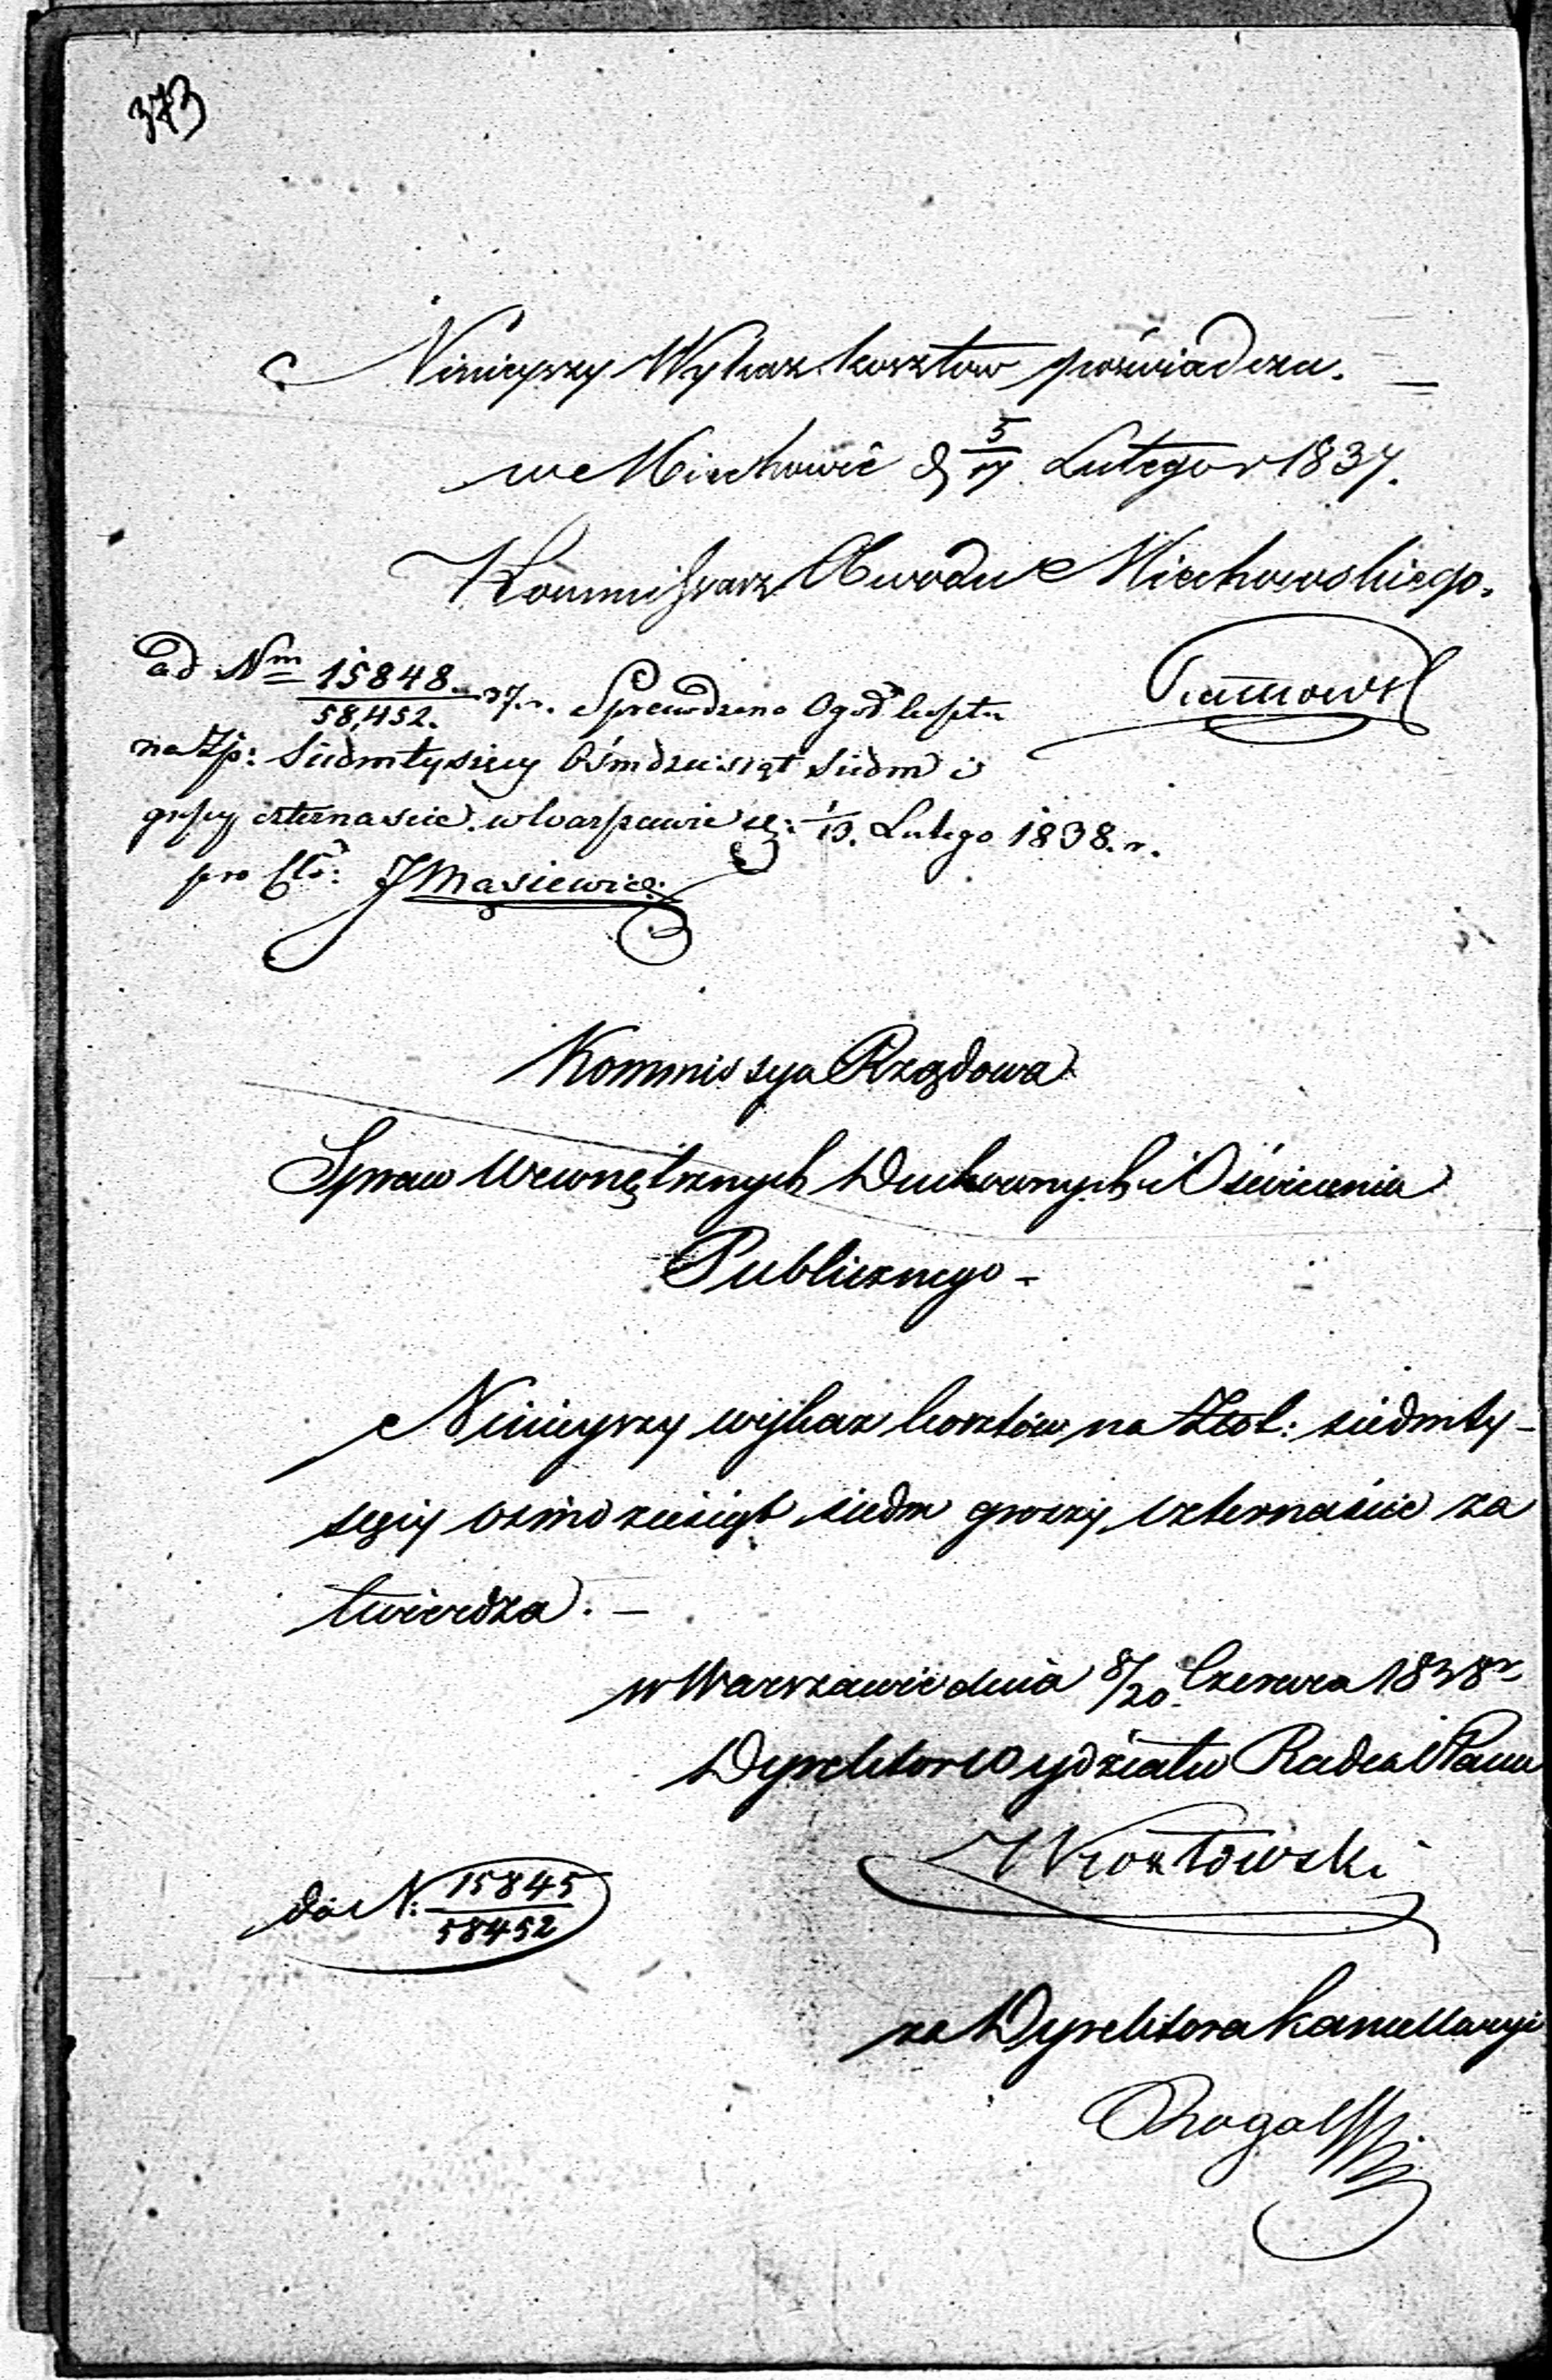 373
Ninieyszy Wykaz kosztów poświadcza. —
w Miechowie d. 5/17 Lutego r 1837.
Kommissarz Obwodu Miechowskiego.
ad Nm 15848/58,452. 37. r. Sprawdzono
na Zp: Siedmtysięcy Ośmdziesiąt siedm i
groszy czternaście. w Warszawie d: 1/13. Lutego 1838. r.
pro J Masiewicz.
Kommissya Rządowa
Spraw Wewnętrznych Duchownych i Oświecenia
Publicznego -
Ninieyszy wykaz kosztów na Złot: siedmty-
sięcy ośmdziesiąt siedm groszy czternaście za
twierdza. —
w Warszawie dnia 8/20. Czerwca 1838 r.
Dyrektor Wydziału Radca Stanu
Kozłowski
do N: 15845/58452
za Dyrektora Kancellaryi
Rogalski